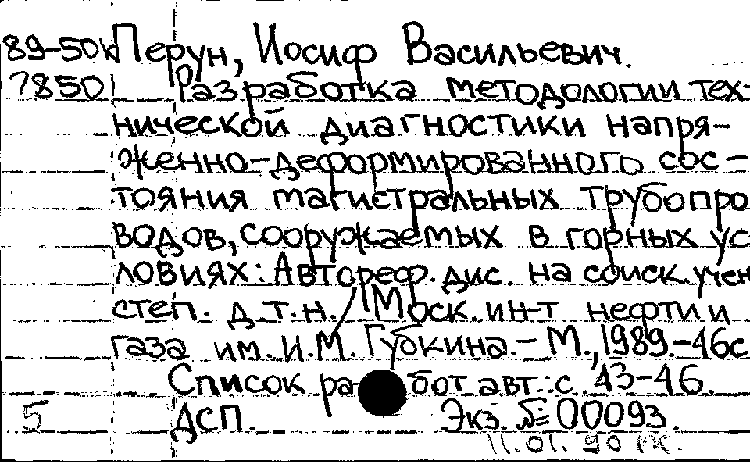 89-50к Перун, Иосиф Васильевич.
7850 Разработка методологии тех-
нической диагностики напря-
женно-деформированного сос-
тояния магистральных трубопро
водов, сооружаемых в горных ус
ловиях: Автореф. дис. на соиск. учен
степ. д.т.н. / Моск. ин-т нефти и
газа им. И.М. Губкина. - М., 1989. - 46с
Список работ авт.: с. 43-46.
5 ДСП. Экз. № 00093.
11.01.90